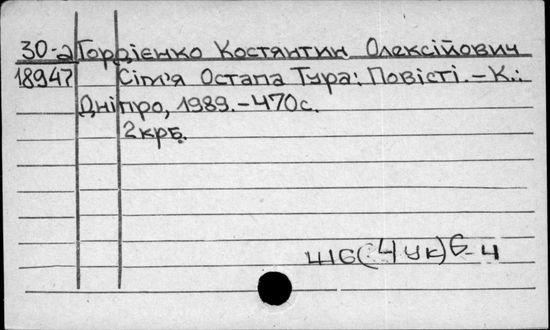 30-а Гордієнко Костянтин Олексійович
18947 Сім'я Остапа Тура: Повісті.-К.:
Дніпро, 1989.-470с.
2крб.
Ш6(4Ук)6-4